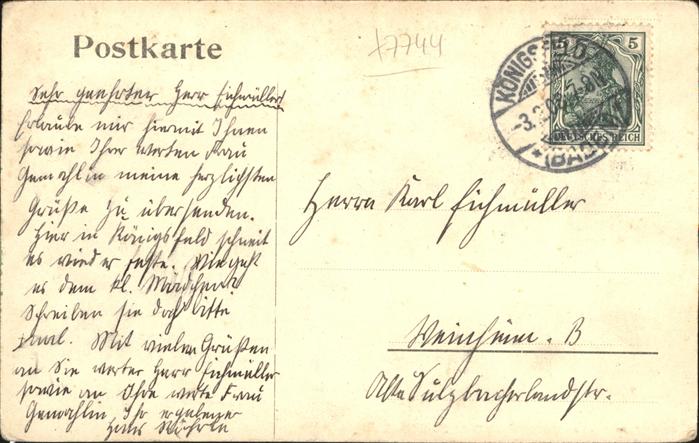 Postkarte
+7744
5
DEUTSCHES REICH
KÖNIGSFELD
-3.2.08. 7-8N.
*(BADEN)
Sehr geehrter Herr Eichmüller!
Erlaube mir hiermit Ihnen
sowie Ihrer werten Frau
Gemahlin meine herzlichsten
Grüße zu übersenden.
Hier in Königsfeld schneit
es wieder feste. Wie geht
es dem kl. Mädchen?
Schreiben sie doch bitte
mal. Mit vielen Grüßen
an Sie werter Herr Eichmüller
sowie an Ihre werte Frau
Gemahlin, Ihr ergebener
Hans Wöhrle
Herrn Karl Eichmüller
Weinheim. B
Alte Sulzbacherlandstr.